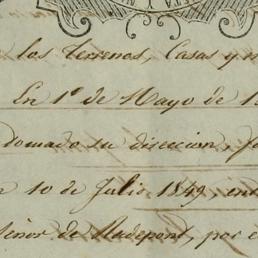 los terrenos, Casas y
En 1º de Mayo de 1
domado su direccion,
10 de Julio 1849, en
Señor de Radepont, por